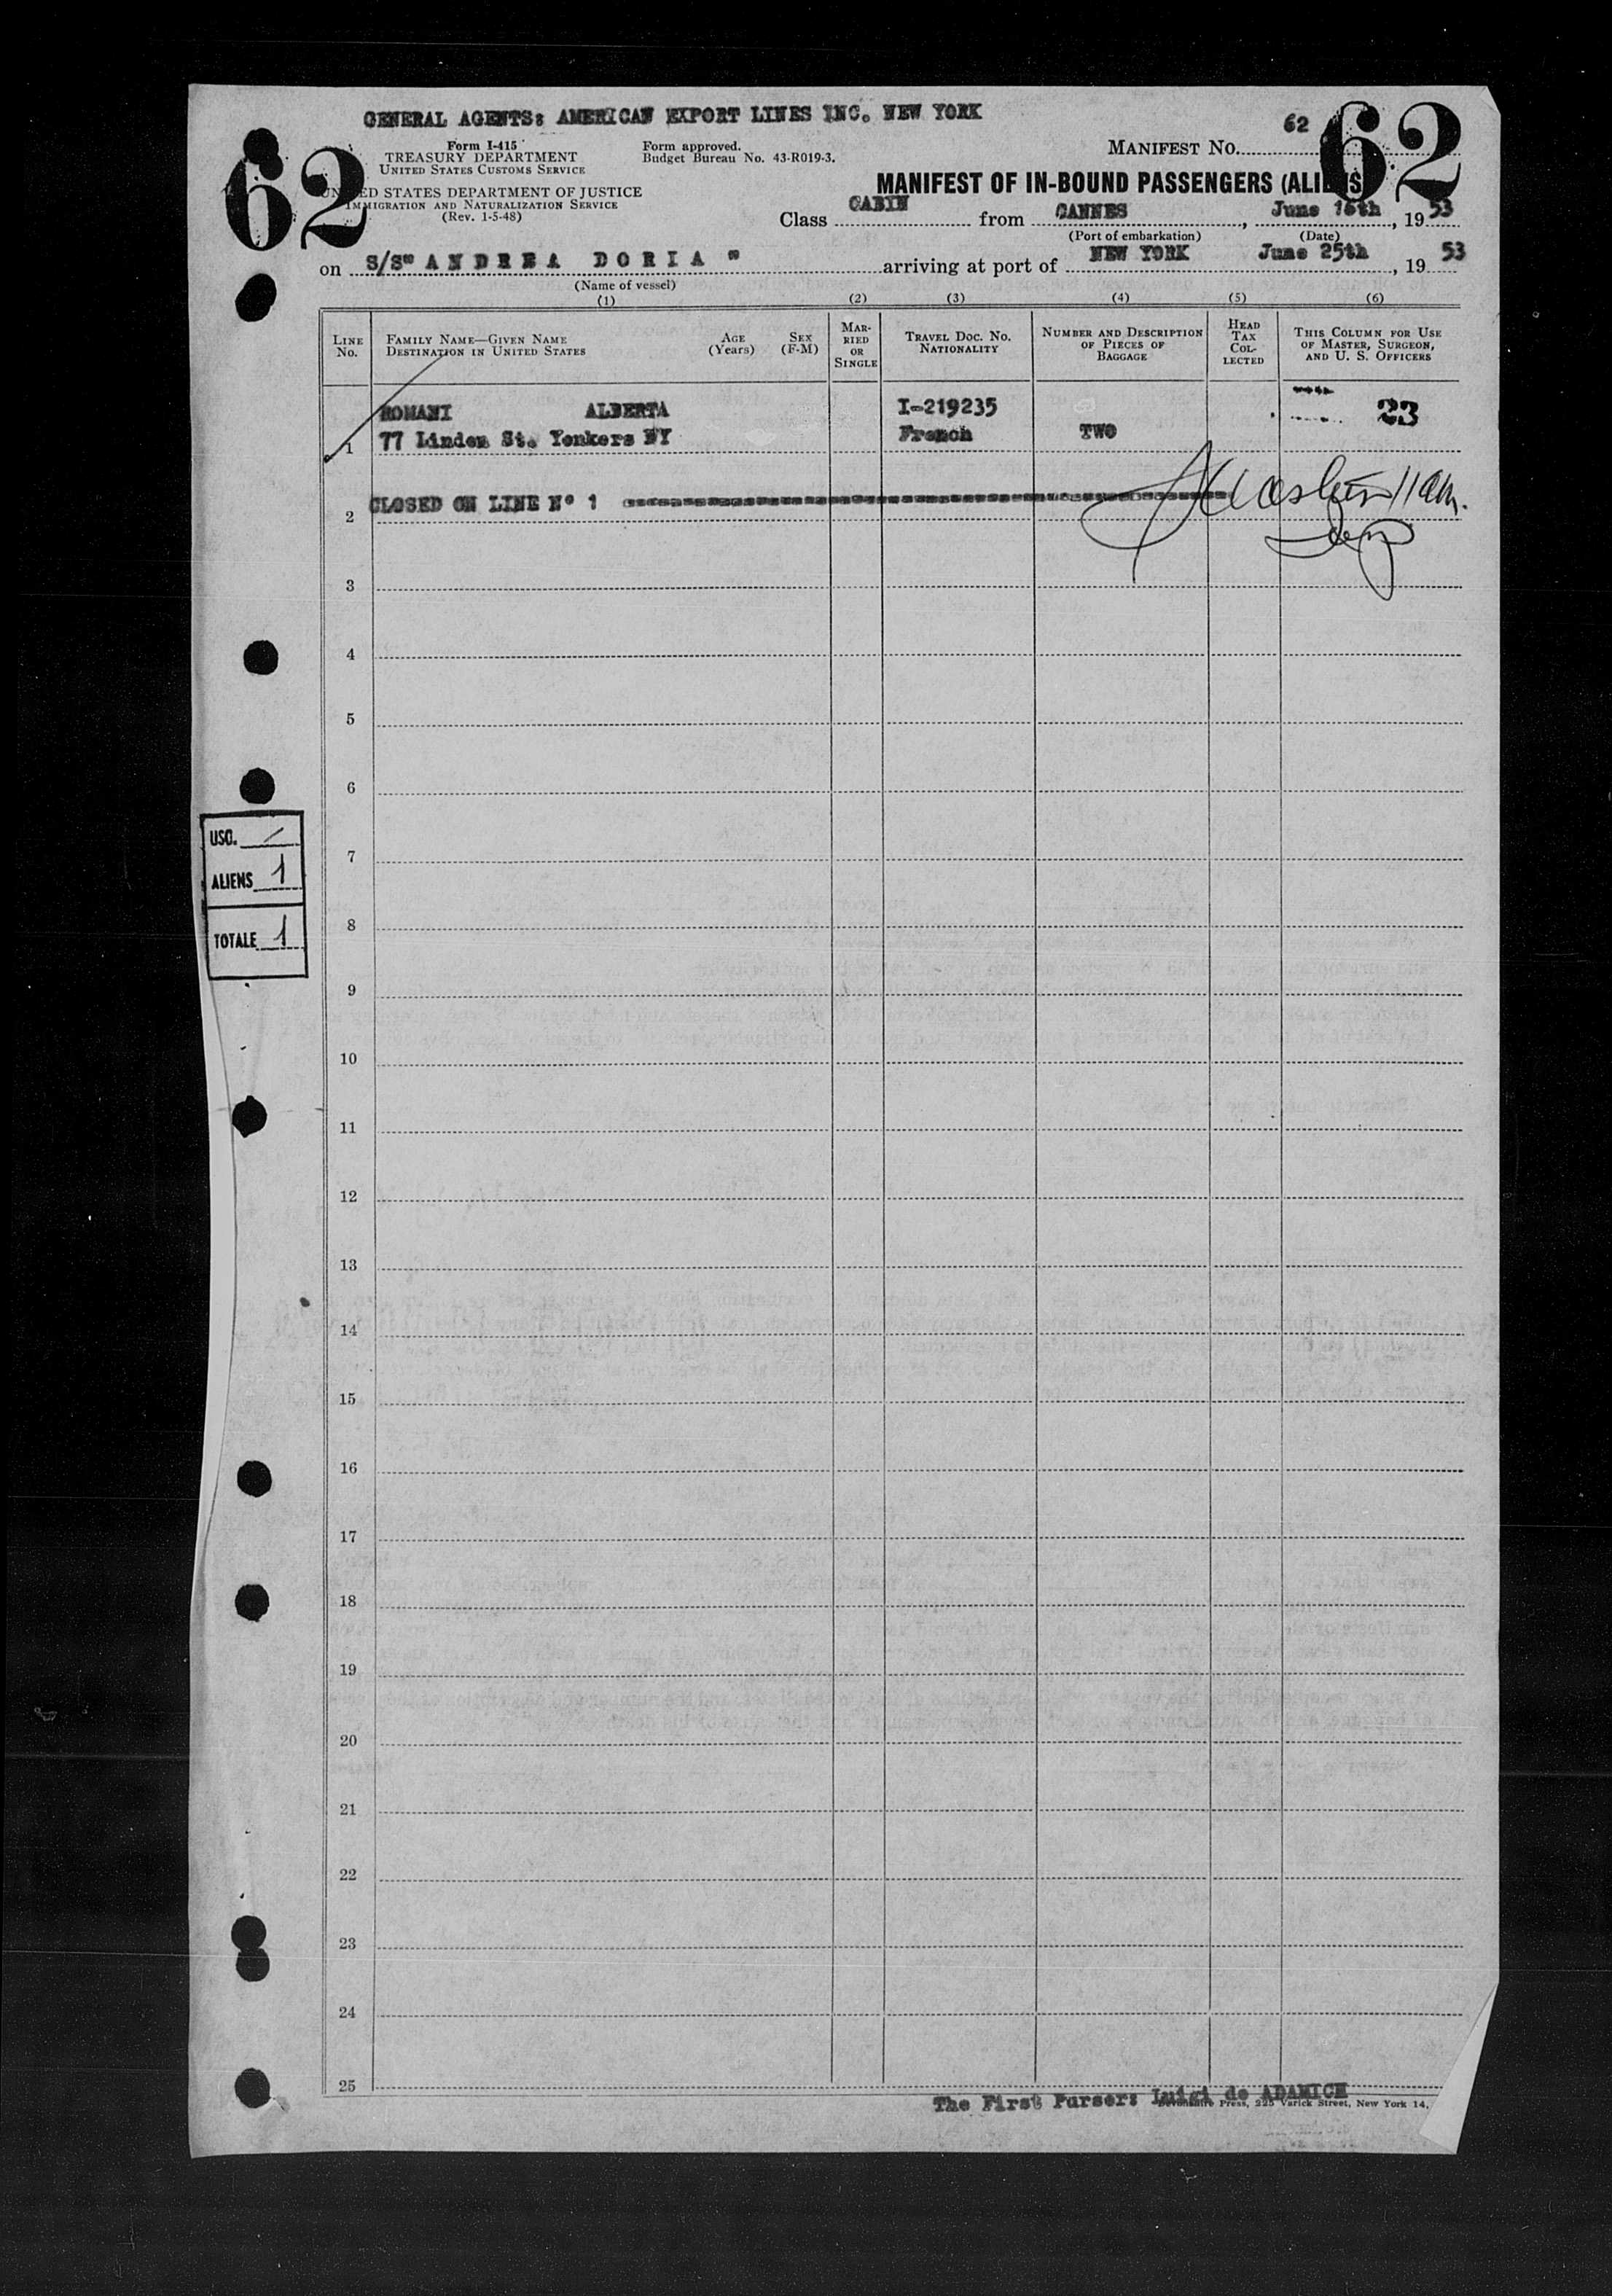 GENERAL AGENTS: AMERICAN EXPORT LINES INC. NEW YORK
62
62
Form I-415
TREASURY DEPARTMENT
UNITED STATES CUSTOMS SERVICE
UNITED STATES DEPARTMENT OF JUSTICE
IMMIGRATION AND NATURALIZATION SERVICE
(Rev. 1-5-48)
Form approved.
Budget Bureau No. 43-R019-3.
MANIFEST No. 62
62
MANIFEST OF IN-BOUND PASSENGERS (ALIENS)
Class CABIN from CANNES, June 16th, 1953
(Port of embarkation) (Date)
on S/S" ANDREA DORIA " arriving at port of NEW YORK June 25th, 1953
(Name of vessel)
(1) (2) (3) (4) (5) (6)
LINE No.
FAMILY NAME—GIVEN NAME
DESTINATION IN UNITED STATES
AGE (Years)
SEX (F-M)
MARRIED OR SINGLE
TRAVEL DOC. NO. NATIONALITY
NUMBER AND DESCRIPTION OF PIECES OF BAGGAGE
HEAD TAX COLLECTED
THIS COLUMN FOR USE OF MASTER, SURGEON, AND U. S. OFFICERS
ROMANI ALBERTA I-219235 23
1 77 Linden St. Yonkers NY French TWO
2 CLOSED ON LINE N° 1
3
4
5
6
USC.
7
ALIENS 1
8
TOTALE 1
9
10
11
12
13
14
15
16
17
18
19
20
21
22
23
24
25
The First Purser: Luigi de ADAMICH
Press, 225 Varick Street, New York 14,